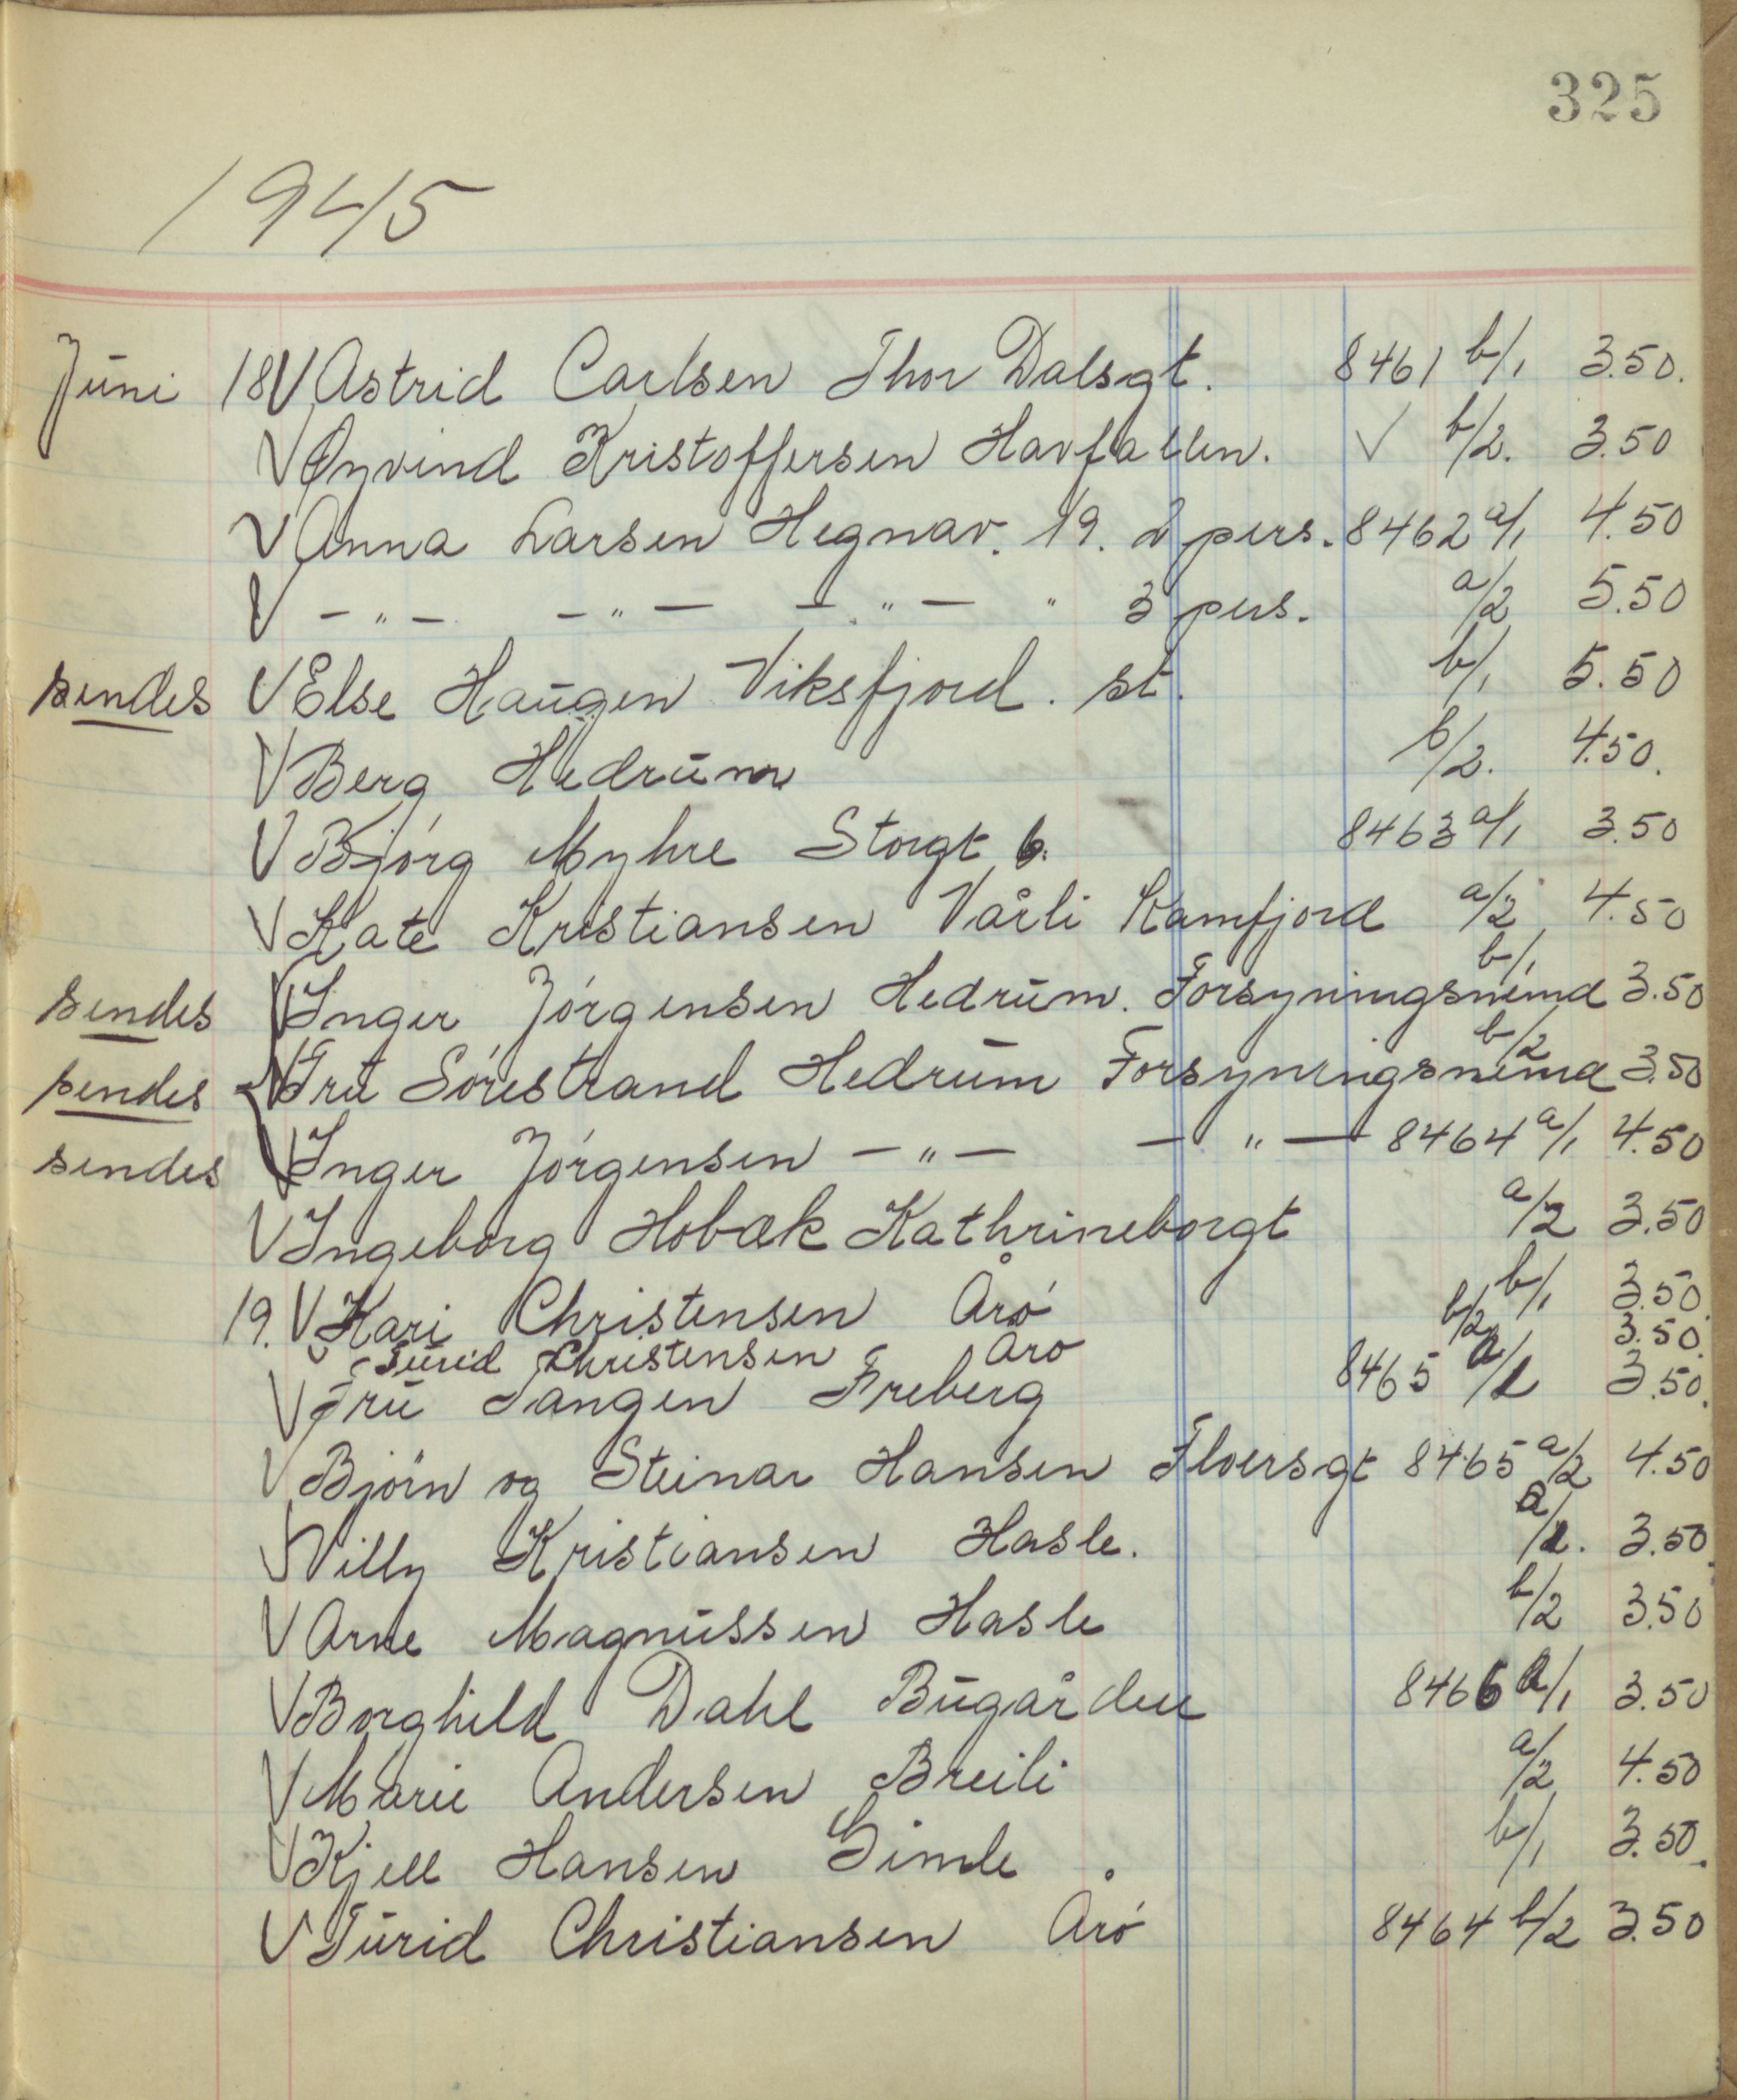 325
1945
Juni 18 V Astrid Carlsen Thor Dalsgt. 8461 b/1 3.50.
V Øyvind Kristoffersen Havfallen. √ b/2. 3.50
V Anna Larsen Hegnav. 19. 2 pers. 8462 a/1 4.50
V — " — — " — — " — " 3 pers. a/2 5.50
sendes V Else Haugen Viksfjord. st. b/1 5.50
V Berg Hedrum b/2. 4.50.
V Bjørg Myhre Storgt 6. 8463 a/1 3.50
V Kate Kristiansen Vårli Kamfjord a/2 4.50
sendes V Inger Jørgensen Hedrum. Forsyningsnemd b/1 3.50
sendes V Fru Sørestrand Hedrum Forsyningsnemd b/2 3.50
sendes V Inger Jørgensen — " — — " — 8464 a/1 4.50
V Ingeborg Hobæk Kathrineborgt a/2 3.50
19. V Kari Christensen Årø b/1 3.50.
V Turid Christensen Årø b/2 3.50.
V Fru Tangen Freberg 8465 a/1 3.50.
V Bjørn og Steinar Hansen Floersgt 8465 a/2 4.50
V Willy Kristiansen Hasle. a/1. 3.50.
V Arne Magnussen Hasle b/2 3.50
V Borghild Dahl Bugården 8466 a/1 3.50
V Marie Andersen Breili a/2 4.50
V Kjell Hansen Gimle b/1 3.50.
V Turid Christiansen Årø 8464 b/2 3.50